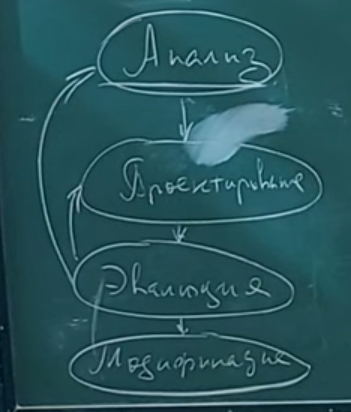 Анализ
Проектирование
Эволюция
Модификация